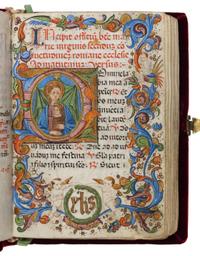 Incipit offitiũ bte ma
rie virginis secundum cõ
suetudinem romane ecclesie
Ad matutinum Versus.
Domine la
bia mea a
peries. R. Et
os meum
annũtia
bit laude
tua. V.
De⁹ in ad
iutori
um meum intede. R. Dne ad ad iu
vadu me festina. V. Gloria patri
et filio et spiritui sco. R. Sicut
yhs